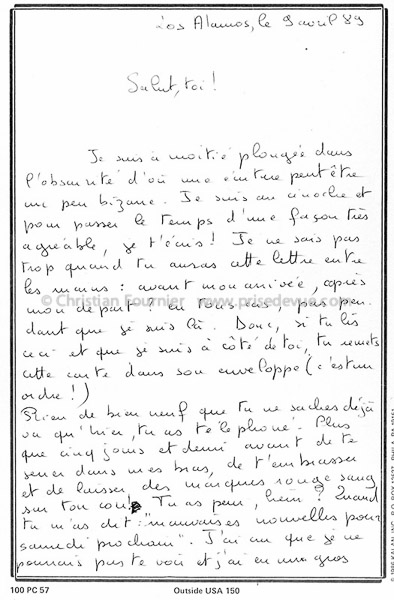 Los Alamos, le 9 avril 89
Salut, toi !
Je suis à moitié plongée dans
l'obscurité d'où une écriture peut être
un peu bizarre. Je suis au cinoche et
pour passer le temps d'une façon très
agréable, je t'écris ! Je ne sais pas
trop quand tu auras cette lettre entre
les mains : avant mon arrivée, après
mon départ ? En tous cas, pas pen-
dant que je suis là. Donc, si tu lis
ceci et que je suis à côté de toi, tu remets
cette carte dans son enveloppe (c'est un
ordre !)
Rien de bien neuf que tu ne saches déjà
vu qu'hier, tu as téléphoné. Plus
que cinq jours et demi avant de te
serrer dans mes bras, de t'embrasser
et de laisser des marques rouge sang
sur ton cou. Tu as peur, hein ? Quand
tu m'as dit : "mauvaises nouvelles pour
samedi prochain". J'ai cru que je ne
pourrais pas te voir et j'ai eu un gros
© Christian Fournier www.prisedevue.com
100 PC 57
Outside USA 150